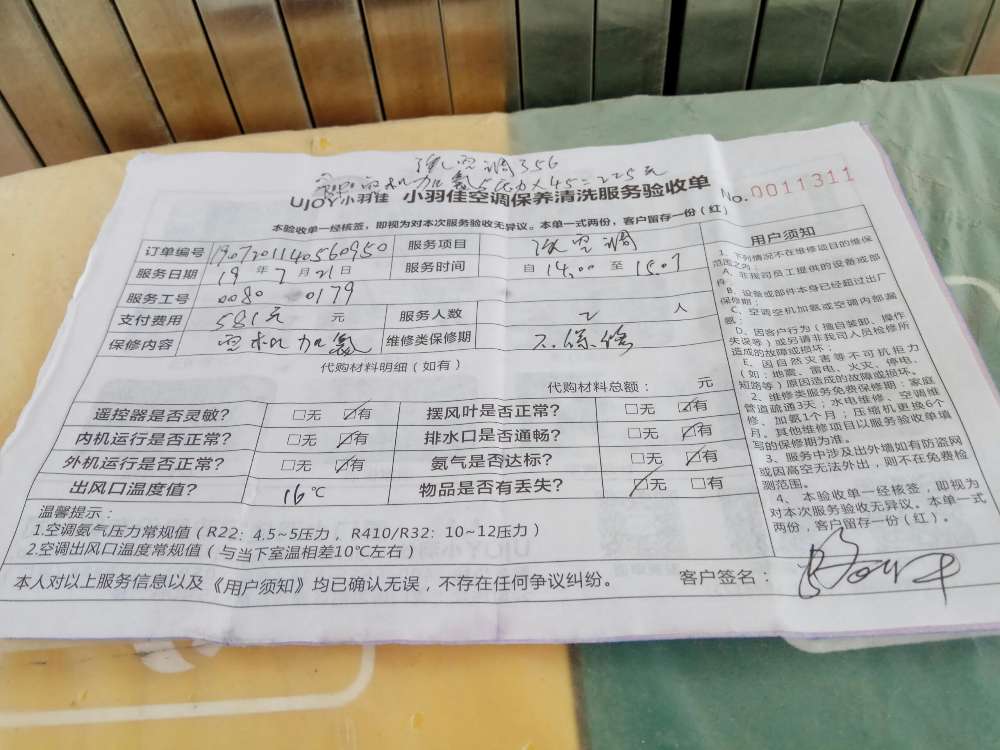 空调356
空机加氨5压力×45=225元
UJOY小羽佳 小羽佳空调保养清洗服务验收单
No.0011311
本验收单一经核签，即视为对本次服务验收无异议。本单一式两份，客户留存一份（红）
订单编号 1907201140560950 服务项目 空调
服务日期 19年7月21日 服务时间 自14:00至15:07
服务工号 0080 0179
支付费用 581元 元 服务人数 2 人
保修内容 空机加氨 维修类保修期 不保修
代购材料明细（如有）
代购材料总额： 元
遥控器是否灵敏? □无 ☑有 摆风叶是否正常? □无 ☑有
内机运行是否正常? □无 ☑有 排水口是否通畅? □无 ☑有
外机运行是否正常? □无 ☑有 氨气是否达标? □无 ☑有
出风口温度值? 16℃ 物品是否有丢失? ☑无 □有
温馨提示：
1.空调氨气压力常规值（R22：4.5~5压力，R410/R32：10~12压力）
2.空调出风口温度常规值（与当下室温相差10℃左右）
本人对以上服务信息以及《用户须知》均已确认无误，不存在任何争议纠纷。 客户签名：
用户须知
1、下列情况不在维修项目的维保
范围之内：
A、非我司员工提供的设备或部
件；
B、设备或部件本身已经超过出厂
保修期；
C、空调空机加氨或空调内部漏
氨；
D、因客户行为（擅自装卸、操作
失误等）或另请非我司人员检修所
造成的故障或损坏；
E、因自然灾害等不可抗拒力
（如：地震、雷电、火灾、停电、
短路等）原因造成的故障或损坏。
2、维修类服务免费保修期：家庭
管道疏通3天；水电维修、空调维
修、加氨1个月；压缩机更换6个
月。其他维修项目以服务验收单填
写的保修期为准。
3、服务中涉及出外墙如有防盗网
或因高空无法外出，则不在免费检
测范围。
4、本验收单一经核签，即视为
对本次服务验收无异议。本单一式
两份，客户留存一份（红）。